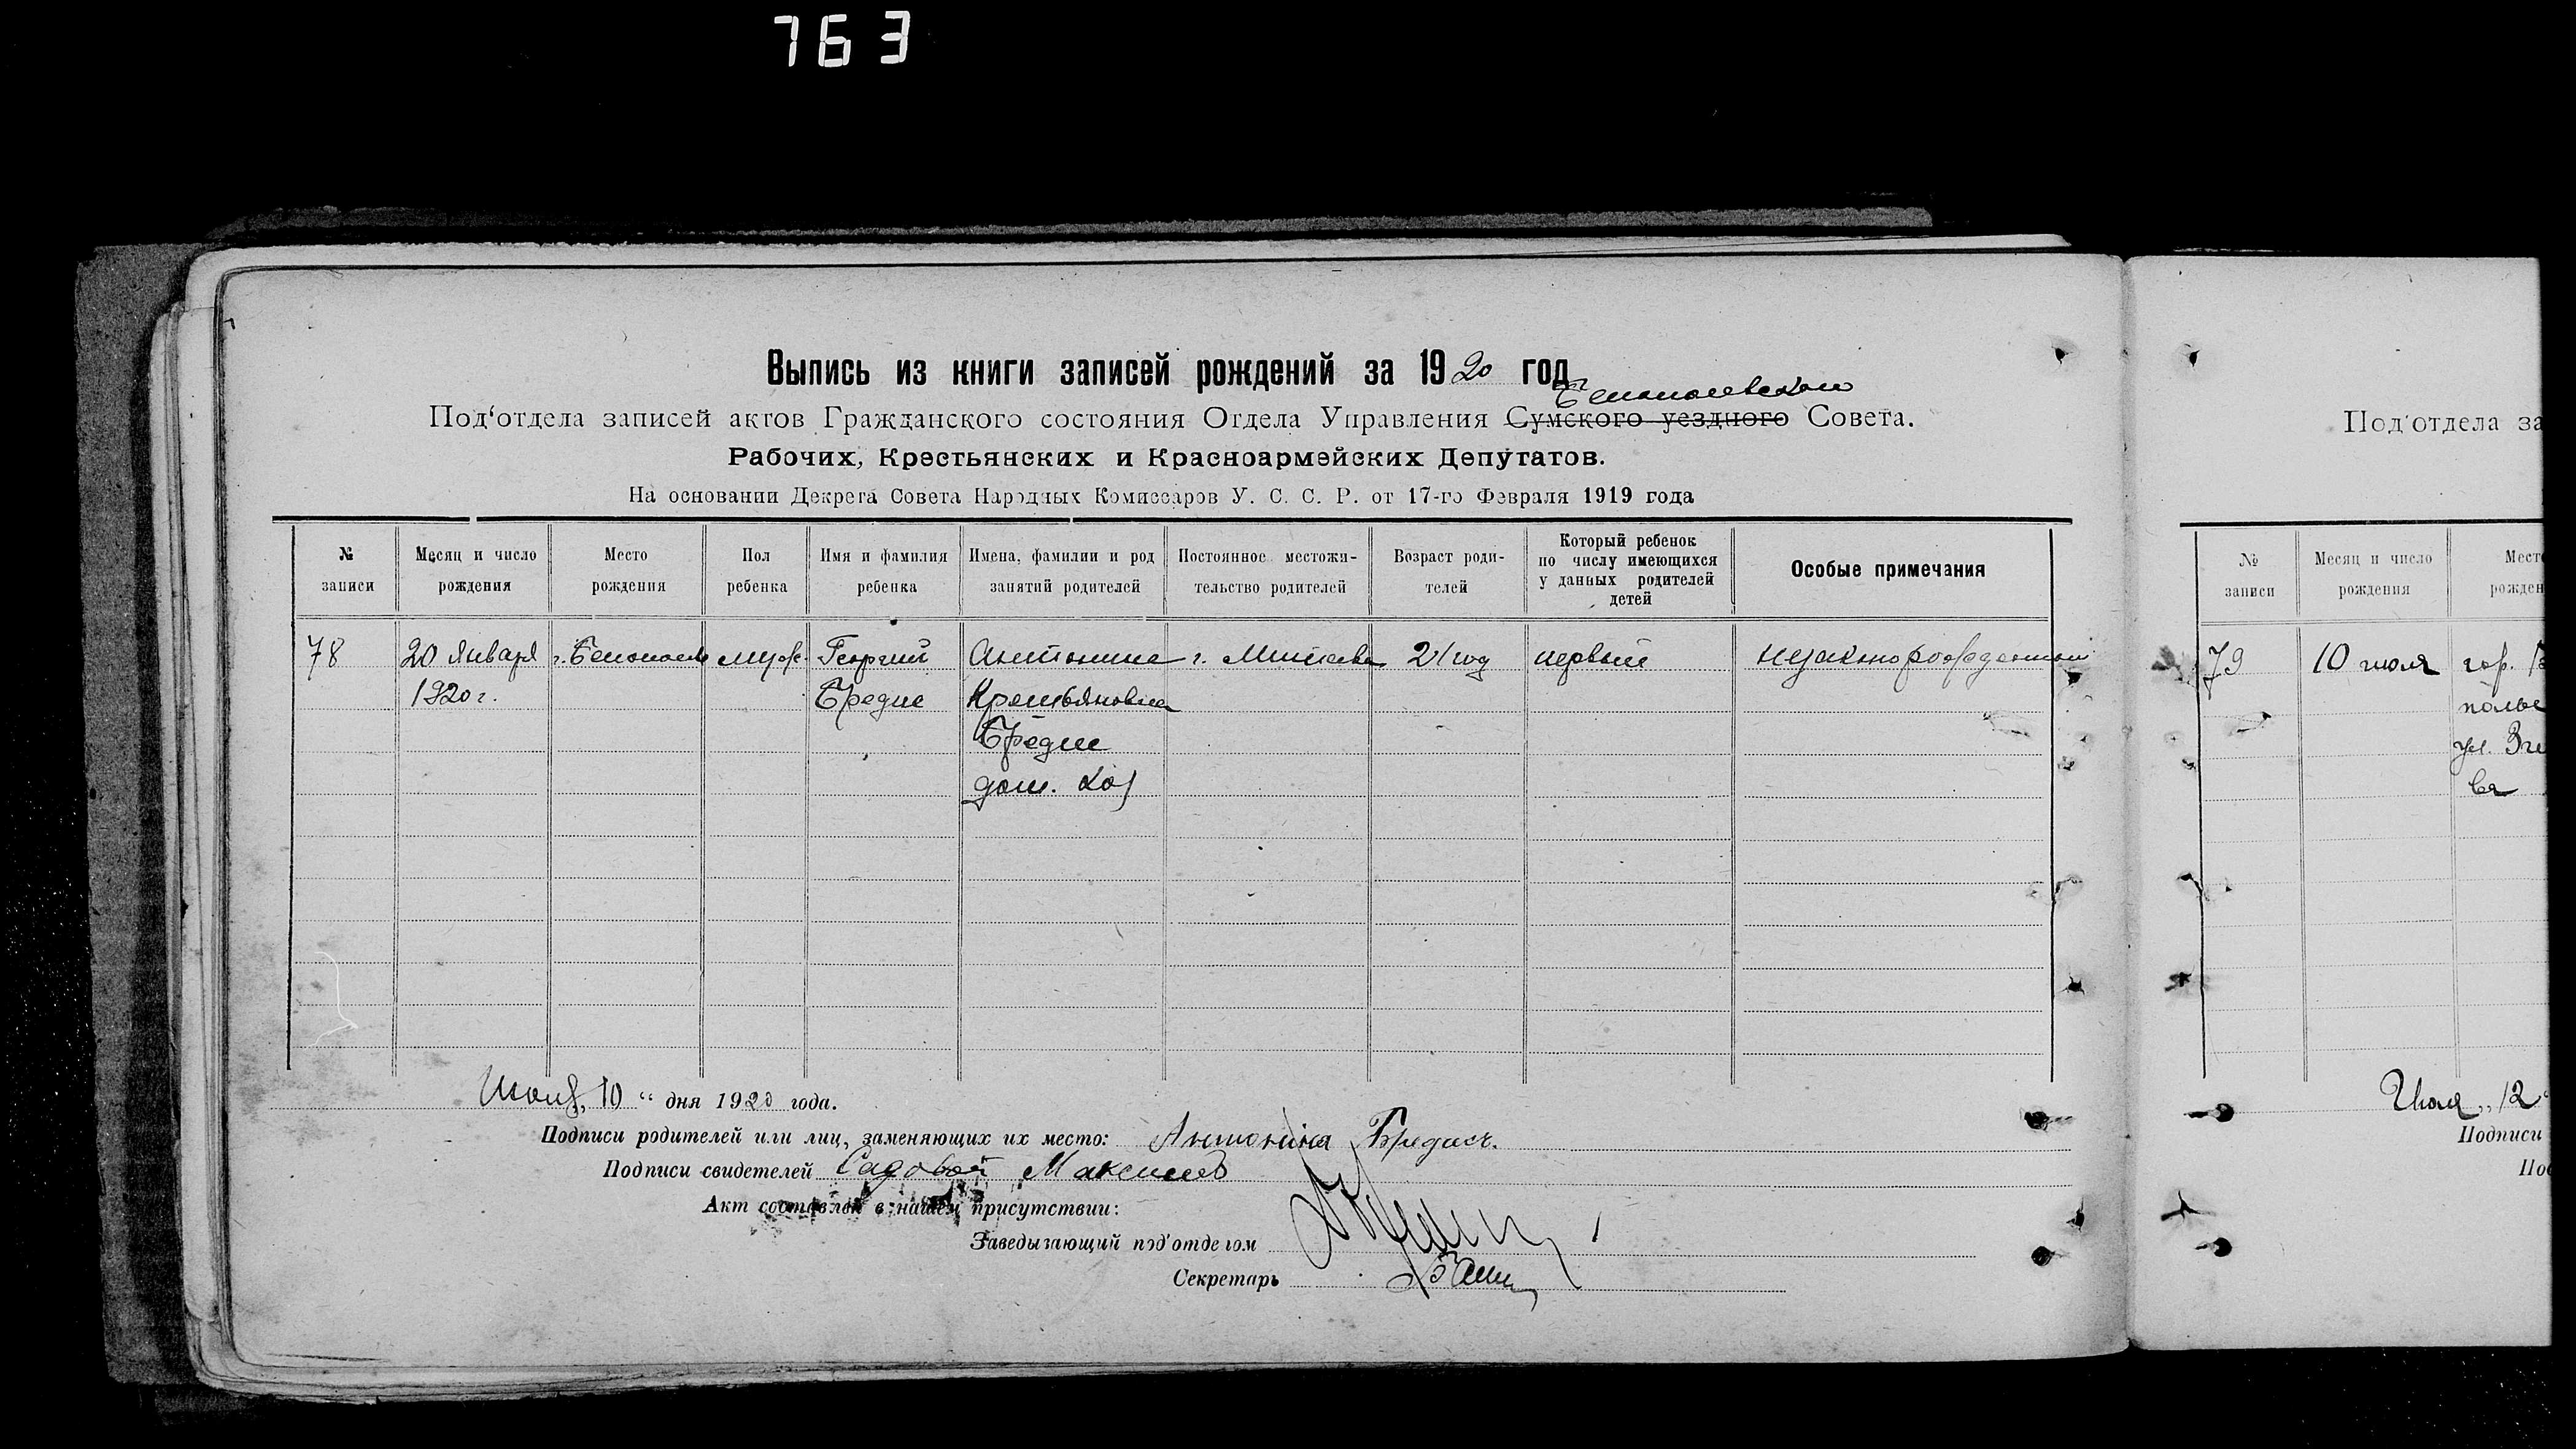 763
Выпись из книги записей рождений за 1920 год
Белопольского
Под‘отдела записей актов Гражданского состояния Отдела Управления Сумского уездного Совета.
Рабочих, Крестьянских и Красноармейских Депутатов.
На основании Декрета Совета Народных Комиссаров У. С. С. Р. от 17-го Февраля 1919 года
№ записи
Месяц и число рождения
Место рождения
Пол ребенка
Имя и фамилия ребенка
Имена, фамилии и род занятий родителей
Постоянное местожительство родителей
Возраст родителей
Который ребенок по числу имеющихся у данных родителей детей
Особые примечания
78 20 Января г. Белополье муж. Георгий Антонина г. Митава 21 год первый незакнорожденный
1920 г. Бредис
Бредис
дом. хоз
10 “ дня 1920 года.
Подписи родителей или лиц, заменяющих их место: Антонина Бредисъ.
Подписи свидетелей Садовой
Акт составлен в нашем присутствии:
Заведывающий под'отделом
Секретарь
Под'отдела за
№ записи
Месяц и число рождения
Мест
рожден
79 10 июля гор.
полье
ул.
ва
Июля „ 12 “
Подписи
Под